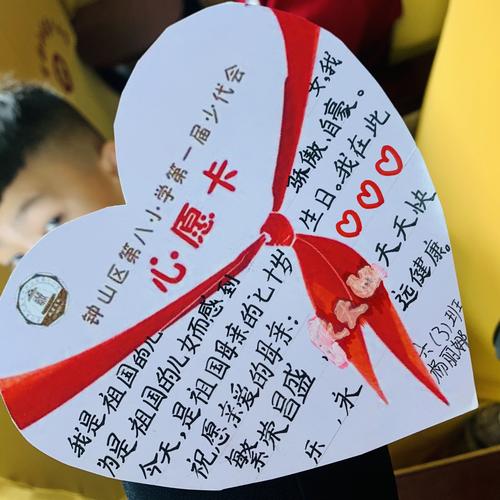 钟山区第八小学第一届少代会
心愿卡
我是祖国的儿女,我
为是祖国的儿女而感到骄傲、自豪。
今天,是祖国母亲的七十岁生日。我在此
祝愿亲爱的母亲:
繁荣昌盛 天天快
乐,永远健康。
六(3)班
杨丽